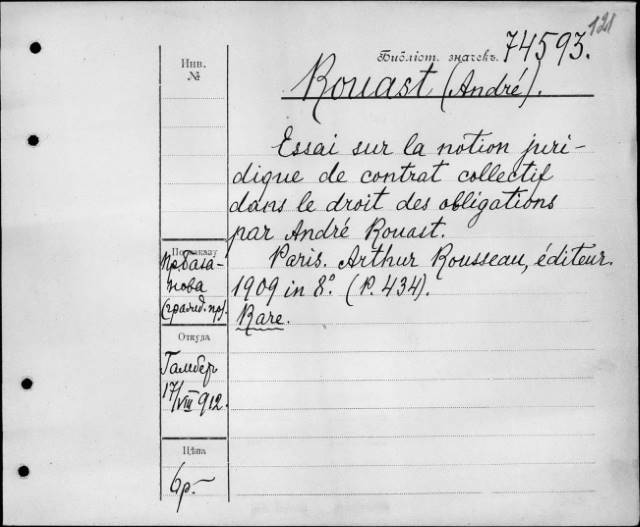 121
Библіот. значекъ. 74593.
Инв.
№
Rouast (André).
Essai sur la notion juri-
dique de contrat collectif
dans le droit des obligations
par André Rouast.
Paris. Arthur Rousseau, éditeur.
1909 in 8.° (P. 434).
Rare.
По заказу
Пр. База-
нова
(гражд. пр).
Откуда
Гамберъ
17/VIII 912.
Цѣна
6р.-